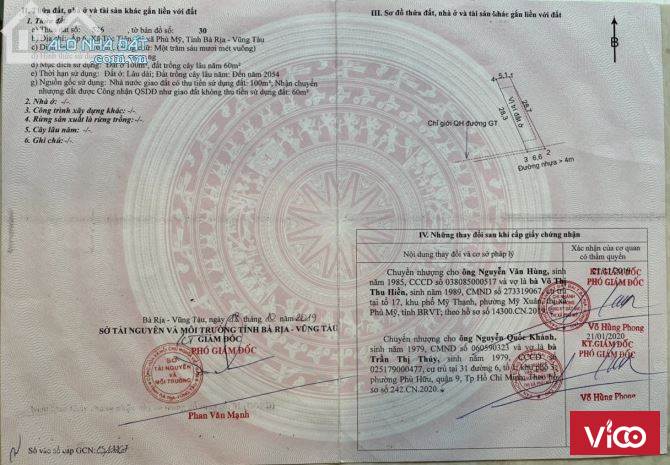 II. Thửa đất, nhà ở và tài sản khác gắn liền với đất
1. Thửa đất:
tờ bản đồ số: 30
xã Phú Mỹ, Tỉnh Bà Rịa - Vũng Tàu
Một trăm sáu mươi mét vuông)
đ) Mục đích sử dụng: Đất ở 100m², đất trồng cây lâu năm 60m²
e) Thời hạn sử dụng: Đất ở: Lâu dài; Đất trồng cây lâu năm: Đến năm 2054
g) Nguồn gốc sử dụng: Nhà nước giao đất có thu tiền sử dụng đất: 100m², Nhận chuyển
nhượng đất được Công nhận QSDĐ như giao đất không thu tiền sử dụng đất: 60m²
2. Nhà ở: -/-
3. Công trình xây dựng khác: -/-
4. Rừng sản xuất là rừng trồng: -/-
5. Cây lâu năm: -/-
6. Ghi chú: -/-
ALO NHÀ ĐẤT
.com.vn
Bà Rịa - Vũng Tàu, ngày 2019
SỞ TÀI NGUYÊN VÀ MÔI TRƯỜNG TỈNH BÀ RỊA - VŨNG TÀU
KT GIÁM ĐỐC
PHÓ GIÁM ĐỐC
SỞ
TÀI NGUYÊN
VÀ
MÔI TRƯỜNG
Phan Văn Mạnh
Số vào sổ cấp GCN:
III. Sơ đồ thửa đất, nhà ở và tài sản khác gắn liền với đất
B
4 5,1 1
28,3
Vị trí đất ở
28,7
Chỉ giới QH đường GT
3 6,6 2
Đường nhựa > 4m
IV. Những thay đổi sau khi cấp giấy chứng nhận
Nội dung thay đổi và cơ sở pháp lý
Xác nhận của cơ quan
có thẩm quyền
Chuyển nhượng cho ông Nguyễn Văn Hùng, sinh
năm 1985, CCCD số 038085000517 và vợ là bà Võ Thị
Thu Hiền, sinh năm 1989, CMND số 273319067, cư trú
tại tổ 17, khu phố Mỹ Thạnh, phường Mỹ Xuân, thị xã
Phú Mỹ, tỉnh BRVT; theo hồ sơ số 14300.CN.2019
PHÓ GIÁM ĐỐC
Võ Hùng Phong
Chuyển nhượng cho ông Nguyễn Quốc Khánh,
sinh năm 1979, CMND số 060590323 và vợ là bà
Trần Thị Thúy, sinh năm 1979, CCCD số
025179000477, cư trú tại 31 đường 6, tổ 1, khu phố
phường Phú Hữu, quận 9, Tp Hồ Chí Minh; Theo hồ
sơ số 242.CN.2020
21/01/2020
KT.GIÁM ĐỐC
PHÓ GIÁM ĐỐC
Võ Hùng Phong
VICO